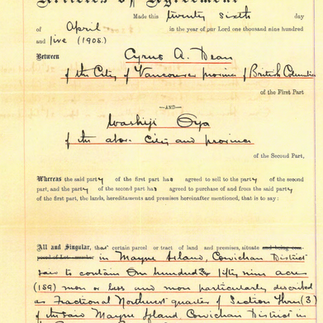 Articles of Agreement
Made this twenty sixth day
of April in the year of our Lord one thousand nine hundred
and five (1905)
Between Cyrus A. Dean
of the City of Vancouver province of British Columbia
of the First Part
—AND—
Oya
of the above City and province
of the Second Part,
Whereas the said party of the first part has agreed to sell to the party of the second
part, and the party of the second part has agreed to purchase of and from the party
of the first part, the lands, hereditaments and premises hereinafter mentioned, that is to say:
All and Singular, that certain parcel or tract of land and premises, situate
in Mayne Island, Cowichan District
said to contain One hundred & fifty nine acres
(159) more or less and more particularly described
as Fractional Northwest quarter of Section Three (3
of the said Mayne Island Cowichan District in